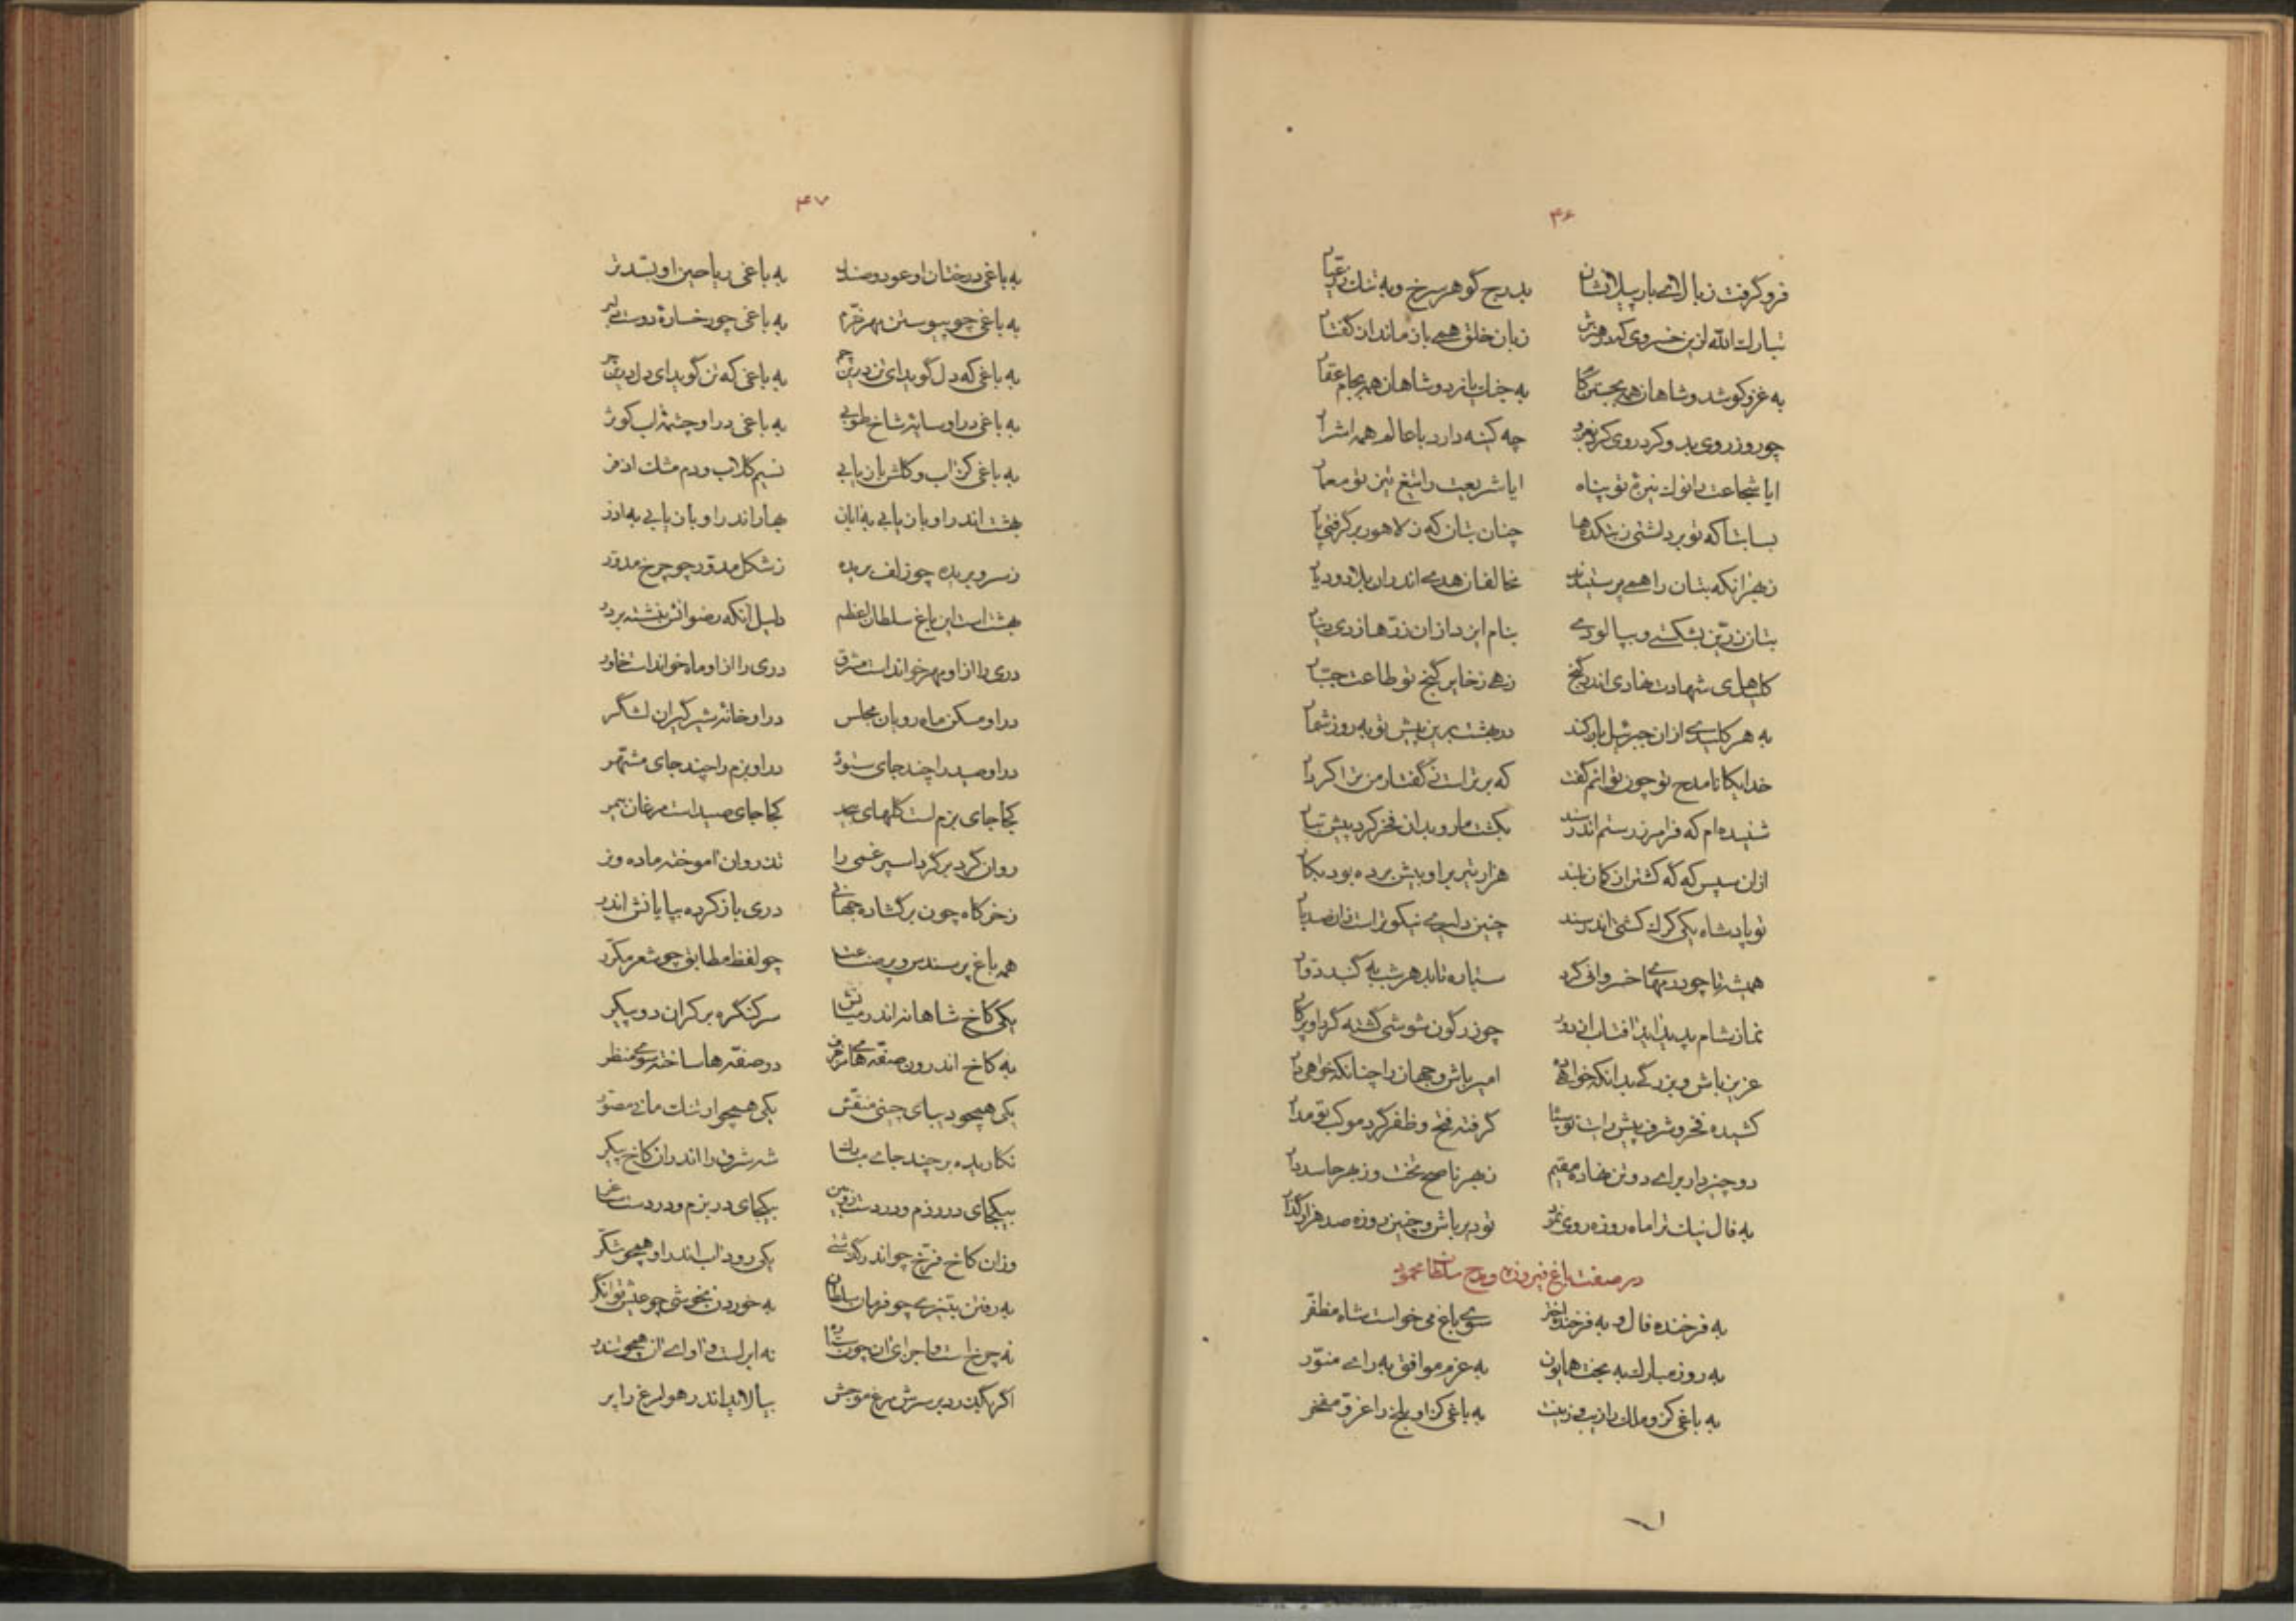 ۴۶
فرو گرفت ز بالای بار پیلانشان بدرج گوهر سرخ و به تنگ زر عیار
تبارک الله ازین خسروی که در هنرش زبان خلق همی باز ماند از گفتار
به غزو کوشد و شاهان همه بجستن کام به جنگ یازد و شاهان همه بجام عقار
چو روز روی بدو کرد روی کرد بغزو چه کینه دارد با عالم همه اشرار
ایا شجاعت را نوک نیزهٔ تو پناه ایا شریعت را تیغ تیز تو معمار
بسا بتا که تو برداشتی ز بتکده‌ها چنان بتان که ز لاهور بر گرفتی پار
ز بهر آنکه بتان را همی پرستیدند مخالفان هدی اندران بلاد و دیار
بتان زرین بشکستی و بپالودی بنام ایزد از آن زرها زدی دینار
کلیدهای شهادت نهادی اندر گنج زهی ذخایر گنج تو طاعت جبار
به هر کلیدی از آن جبرئیل باز کند در بهشت برین پیش تو به روز شمار
خدایگانا مدح تو چون توانم گفت که برتر است ز گفتار من ترا کردار
شنیده‌ام که فرامرز رستم اندر سند بکشت مار و بدان فخر کرد پیش تبار
ازان سپس که گه کشتن از کمان بلند هزار تیر بر او بیش برده بود بکار
تو پادشاه یکی کرگ کشتی اندر سند چنین دلیری نیکوتر است زان صد بار
همیشه تا چو درمهای خسروانی گرد ستاره تابد هر شب به گنبد دوار
نماز شام پدید آید آفتاب از دور چو زرگون شوشی گشته گرد او پرگار
عزیز باش و بزرگی بدانکه خواهی ده امیر باش و جهان را چنانکه خواهی دار
کشیده فخر و شرف پیش رایت تو سپاه گرفته فتح و ظفر گرد موکب تو مدار
دو چیز دار برای دو تن نهاده مقیم ز بهر ناصح تخت و ز بهر حاسد دار
به فال نیک ترا ماه روزه روی نمود تو دیر باش و چنین روزه صد هزار گذار
در صفت باغ فیروزه و مدح سلطان محمود
به فرخنده فال و به فرخنده اختر سوی باغ می خواست شاه مظفر
به روز مبارک به بخت همایون به عزم موافق به رای منور
به باغی کزو ملک را زیب و زینت به باغی کز او بلخ را عز و مفخر
۴۷
به باغی درختان او عود و صندل به باغی ریاحین او بسد تر
به باغی چو پیوستن مهر خرم به باغی چو رخسارهٔ دوست دلبر
به باغی که دل گوید ای تن درین چم به باغی که تن گوید ای دل درین چر
به باغی در او سایهٔ شاخ طوبی به باغی در او چشمهٔ آب کوثر
به باغی کز آب و گلش باز یابی نسیم گلاب و دم مشک اذفر
بهشت اندر او باز یابی به آبان بهار اندر او باز یابی به آذر
ز سرو بریده چو زلف بریده ز شکل مدور چو چرخ مدور
بهشت است این باغ سلطان اعظم دلیل آنکه رضوانش بنشسته بر در
دری را از او مهر خوانداست مشرق دری را از او ماه خوانداست خاور
در او مسکن ماه رویان مجلس در او خانهٔ شیر گیران لشگر
در او صید را چند جای ستوده در او بزم را چند جای مشتهر
کجا جای بزم است گلهای بیحد کجا جای صید است مرغان بیمر
روان گرد بر گرد اسپرغمی را تذروان آموخته ماده و نر
ز خرگاه چون بر گشاده جهانی دری باز کرده بپایانش اندر
همه باغ پر سندس و پر صناعت چو لفظ مطابق چو شعر مکرر
یکی کاخ شاهانه اندر میانش سر کنگره بر کران دو پیکر
به کاخ اندرون صفه‌های مزخرف در صفه‌ها ساخته سوی منظر
یکی همچو دیبای چینی منقش یکی همچو ارتنگ مانی مصور
نگاریده بر چند جای مبارک شه شرق را اندر آن کاخ پیکر
بیکجای در رزم و در دست زوبین بیکجای در بزم و در دست ساغر
وزان کاخ فرخ چو اندر گذشتی یکی رود آب اندر او همچو شکر
به رفتن بتیزی چو فرمان سلطان به خوردن بخوشی چو عیش توانگر
نه چرخ است و اجزای آن چون ستاره نه ابر است و آوای آن همچو تندر
اگر بگذرد بر سرش مرغ موجش بیالاید اندر هوا مرغ را پر